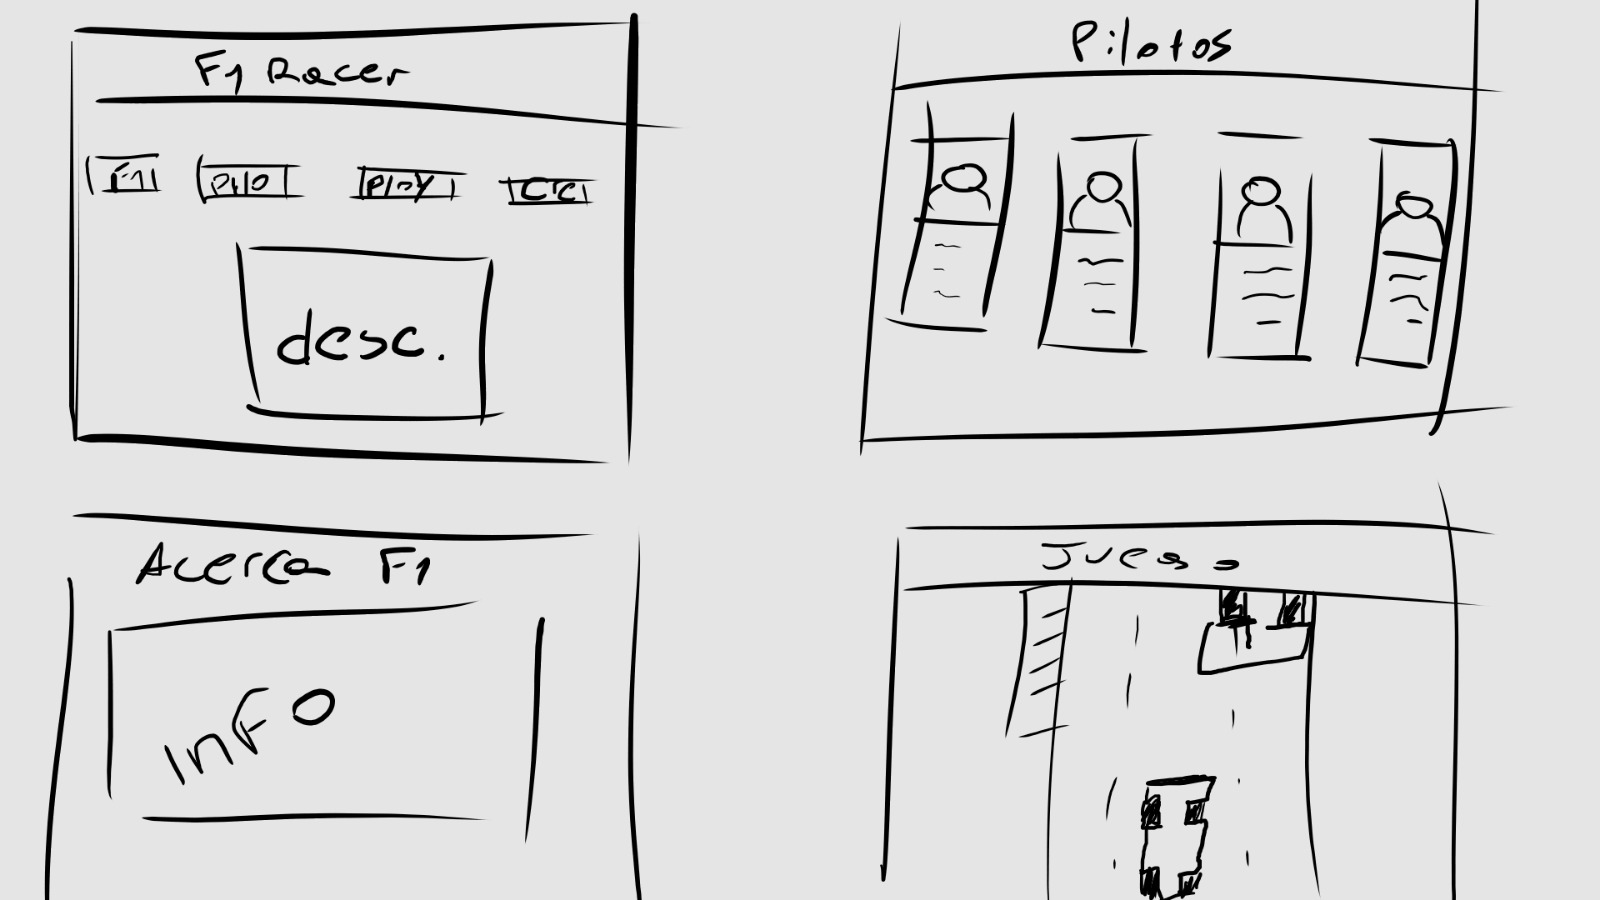 F1 Racer
F1
pilo
Play
etc
desc.
Pilotos
Acerca F1
Info
Juego